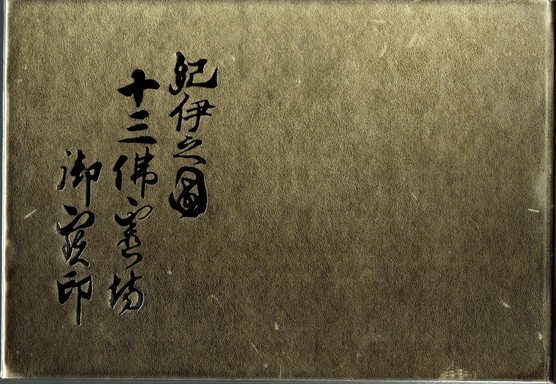 紀伊之國
十三佛霊場
御寶印